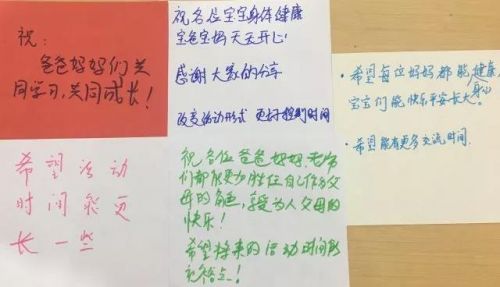 祝：
爸爸妈妈们共
同学习，共同成长！
祝各位宝宝身体健康
宝爸宝妈天天开心！
感谢大家的分享
改变活动形式 更好控制时间
·希望每位妈妈都能身心健康,
宝宝们能快乐平安长大。
·希望能有更多交流时间.
希望活动
时间能更
长一些
祝各位爸爸妈妈.老师
们都能更加胜任自己作为父
母的角色，享受为人父母的
快乐！
希望将来的活动时间能
充裕点！